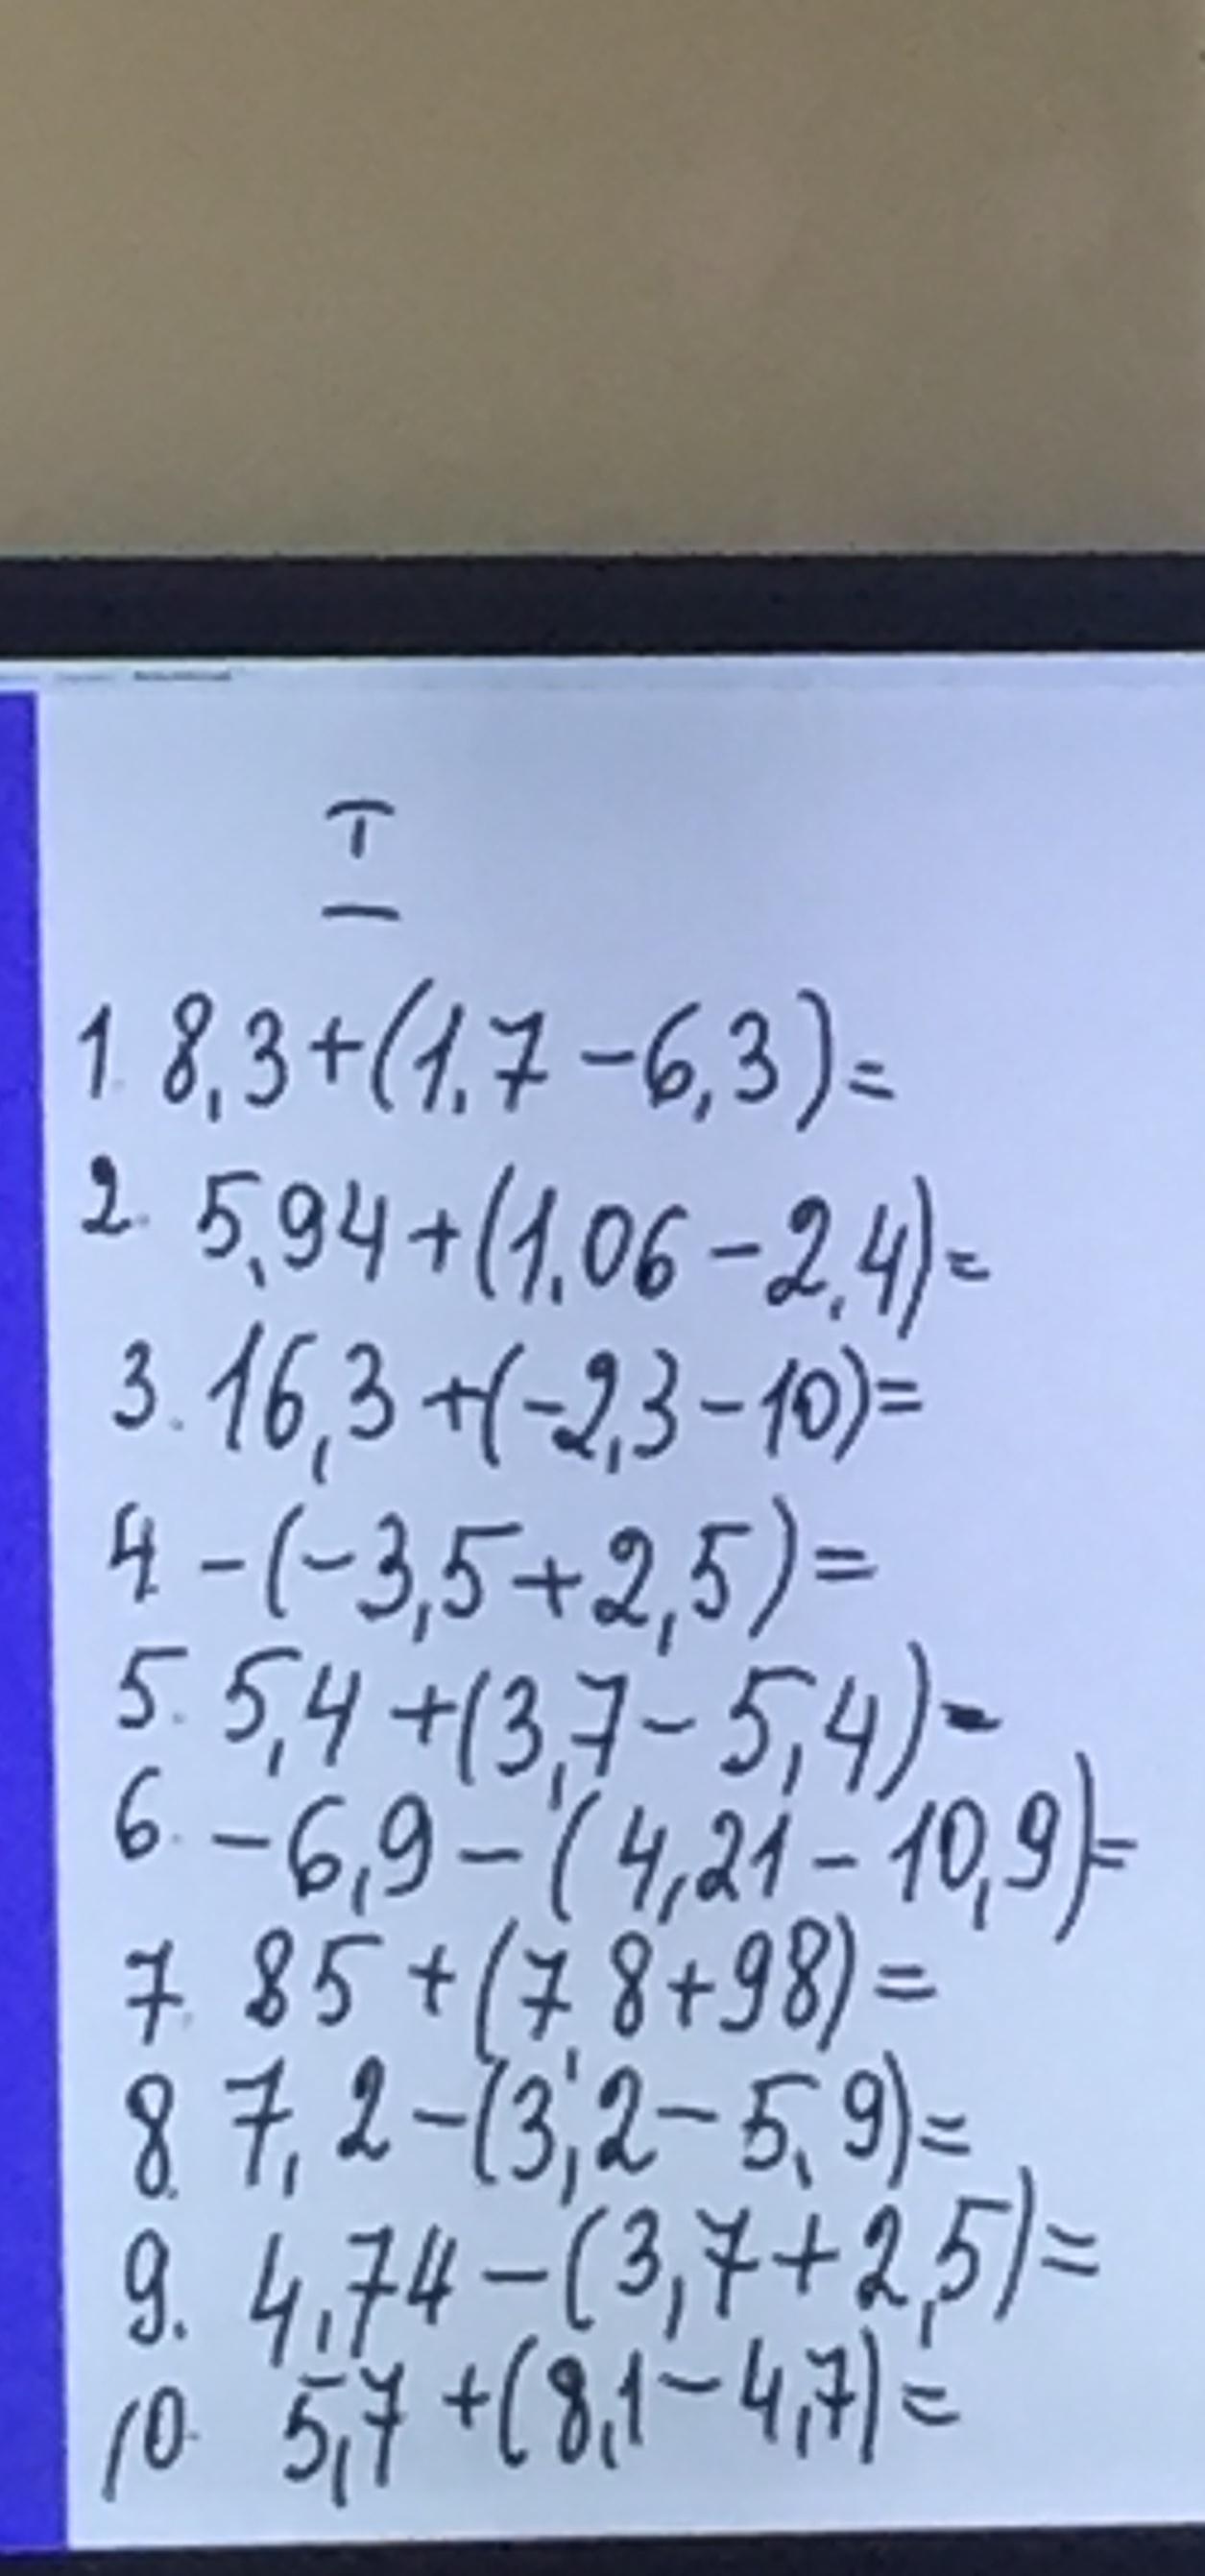 I
1. 8,3+(1,7-6,3)=
2. 5,94+(1,06-2,4)=
3. 16,3+(-2,3-10)=
4. -(-3,5+2,5)=
5. 5,4+(3,7-5,4)-
6. -6,9-(4,21-10,9)=
7. 85+(78+98)=
8. 7,2-(3,2-5,9)=
9. 4,74-(3,7+2,5)=
10. 5,7+(8,1-4,7)=